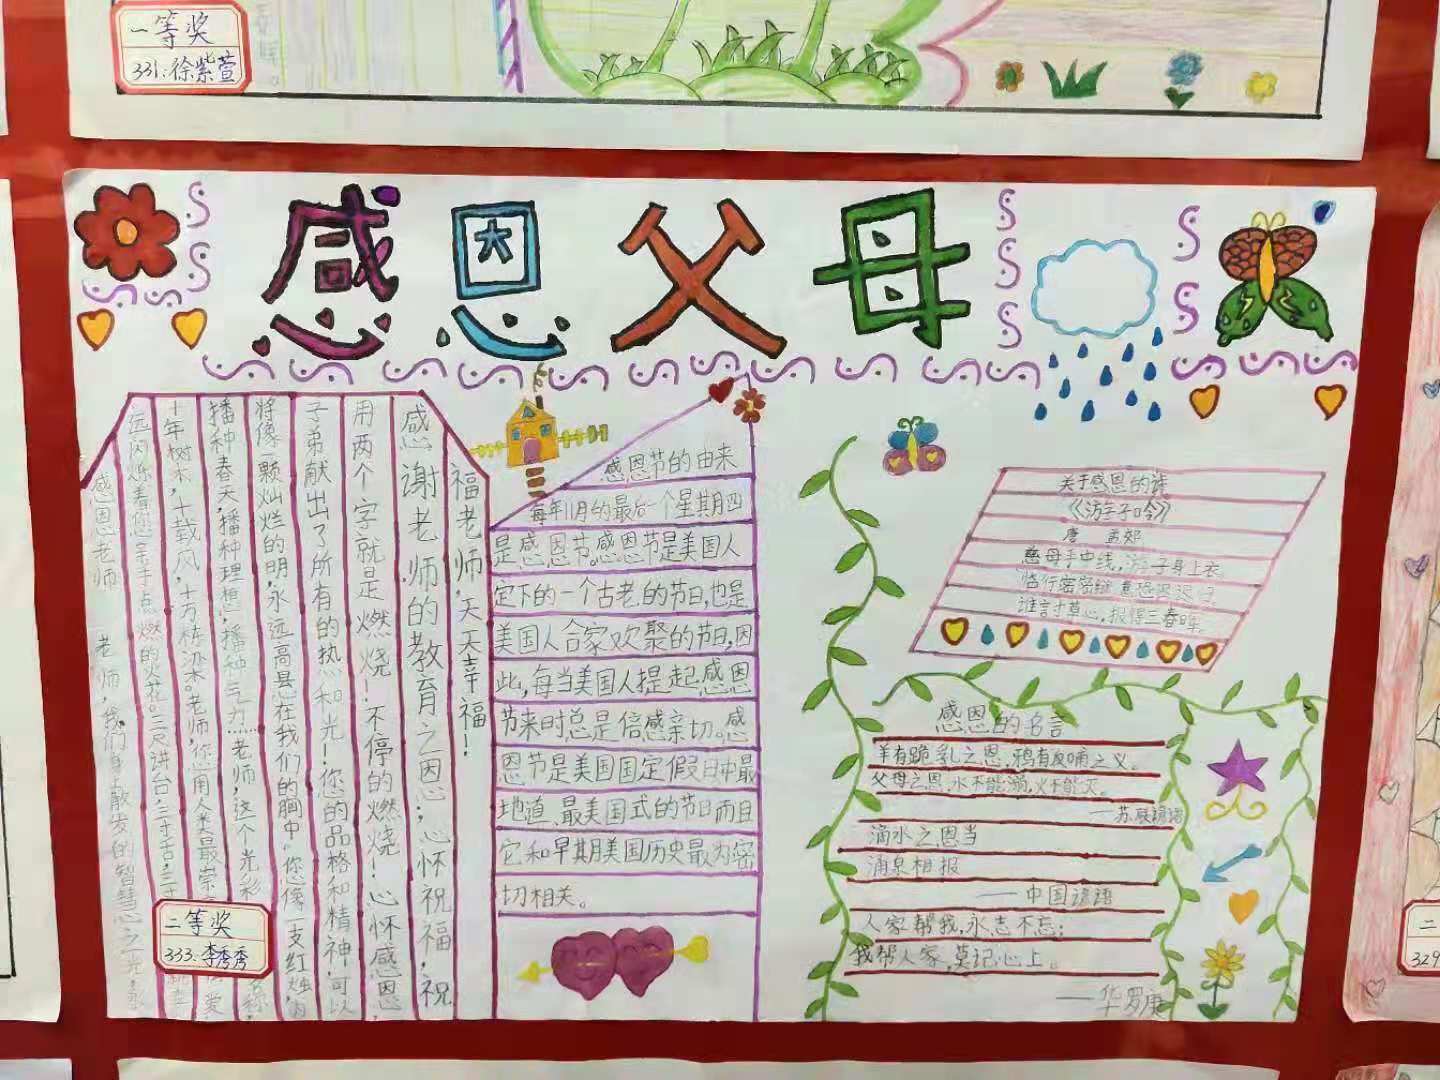 一等奖
331:徐紫萱
感恩父母
感恩老师
老师,我们身散发的智慧之光,永
远闪烁着您亲手点燃的火花。三尺讲台,三寸舌,三寸
十年树木,十载风,十万栋梁。老师,您用人类最崇
爱
播种春天,播种理想,播种力……老师,这个光彩
将像一颗灿烂的明,永远高悬在我们的胸中。您像一支红烛,为
子弟献出了所有的热和光!您的品格和精神,可以
用两个字就是燃烧!不停的燃烧!心怀感恩,
感谢老师的教育之恩;心怀祝福,祝
福老师,天天幸福!
二等奖
333:李秀秀
感恩节的由来
每年11月的最后一个星期四
是感恩节。感恩节是美国人
定下的一个古老的节日,也是
美国人合家欢聚的节日,因
此,每当美国人提起感恩
节来时总是倍感亲切。感
恩节是美国国定假日中最
地道、最美国式的节日而且
它和早期美国历史最为密
切相关。
关于感恩的诗
《游子吟》
唐 孟郊
慈母手中线,游子身上衣。
临行密密缝,意恐迟迟归。
谁言寸草心,报得三春晖。
感恩的名言
羊有跪乳之恩,鸦有反哺之义。
父母之恩,水不能溺,火不能灭。
——苏联谚语
滴水之恩当
涌泉相报
——中国谚语
人家帮我,永志不忘;
我帮人家,莫记心上。
——华罗庚
二
329